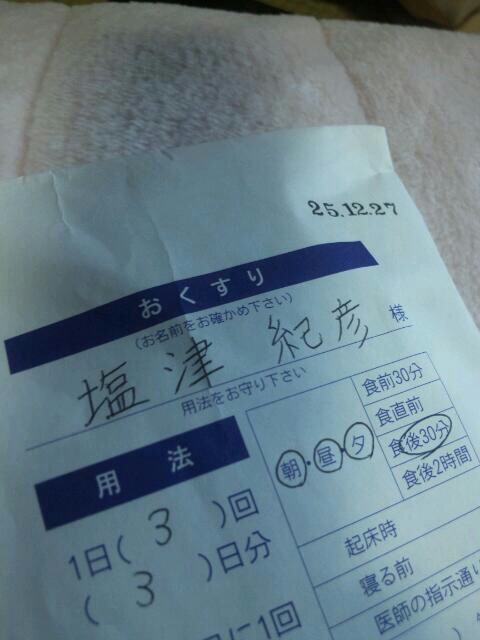 25.12.27
おくすり
(お名前をお確かめ下さい)
塩津 紀彦 様
用法をお守り下さい
用法
1日( 3 )回
( 3 )日分
に1回
朝・昼・夕
食前30分
食直前
食後30分
食後2時間
起床時
寝る前
医師の指示通り